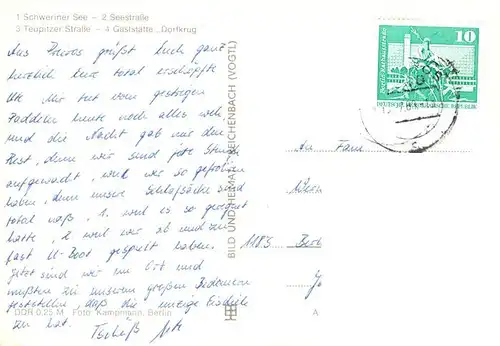 1 Schweriner See – 2 Seestraße
3 Teupitzer Straße – 4 Gaststätte „Dorfkrug
Aus Pruros grüßt Euch ganz
herzlich Eure total erschöpfte
Ute. Mir tut vom gestrigen
Paddeln heute noch alles weh
und die Nacht gab mir den
Rest, denn wir sind jede Stunde
aufgewacht, weil wir so gefroren
haben, denn unsere Schlafsäcke sind
total naß, 1. weil es so geregnet
hatte, 2. weil wir ab und zu
fast U-Boot gespielt haben.
Jetzt sind wir im Ort und
mußten zu unserem großen Bedauern
feststellen, daß die einzige Eisdiele
zu hat. Tschüß Ute
DDR 0,25 M Foto: Kampmann, Berlin
BILD UND HEIMAT REICHENBACH (VOGTL)
10
DEUTSCHE DEMOKRATISCHE REPUBLIK
An Fam.
1185 Berl
A